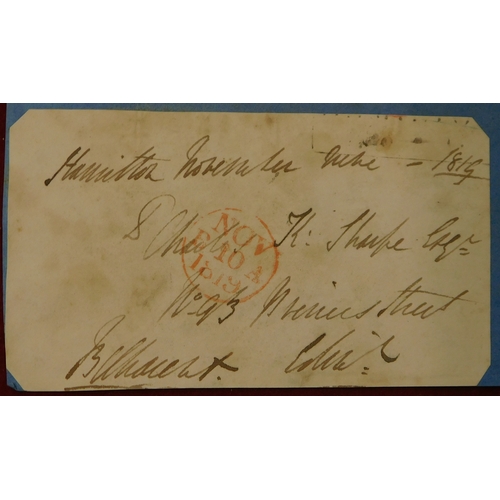 Hamilton November nine - 1819
Charles K: Sharpe Esqr
NOV
10
1819
No. 93 Princes Street
Edinr.